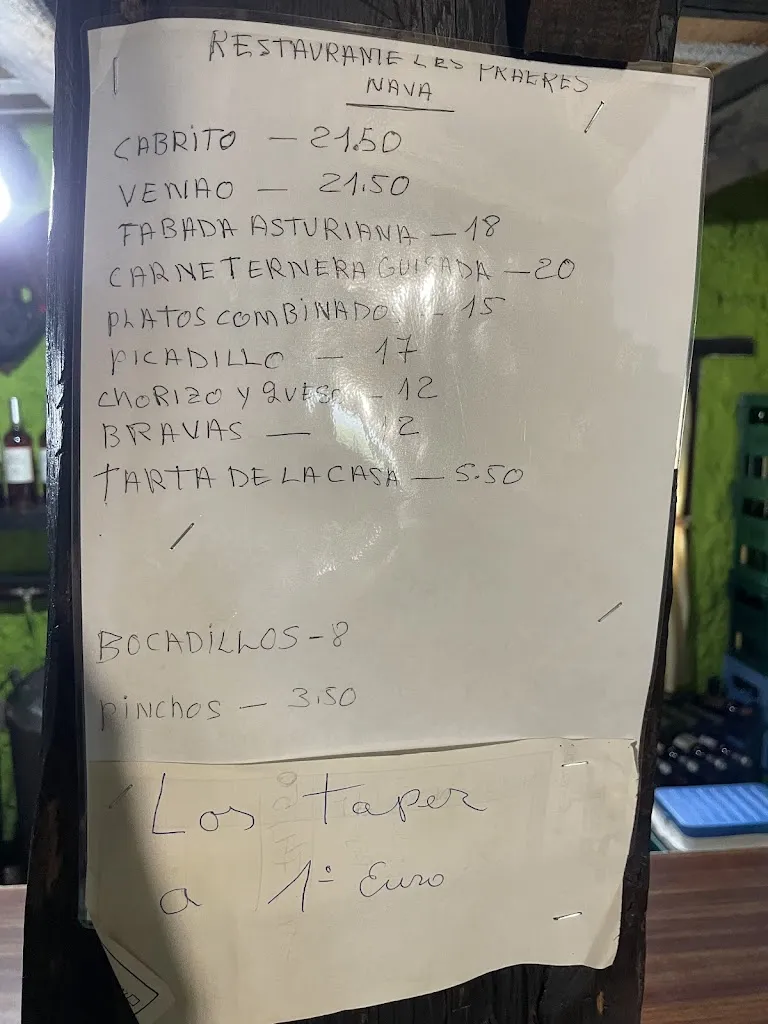 RESTAURANTE LES PRAERES
NAVA
CABRITO — 21.50
VENAO — 21.50
FABADA ASTURIANA — 18
CARNE TERNERA GUISADA — 20
PLATOS COMBINADO - 15
PICADILLO — 17
CHORIZO Y QUESO - 12
BRAVAS — 12
TARTA DE LA CASA — 5.50
BOCADILLOS - 8
PINCHOS — 3.50
Los taper
a 1º Euro